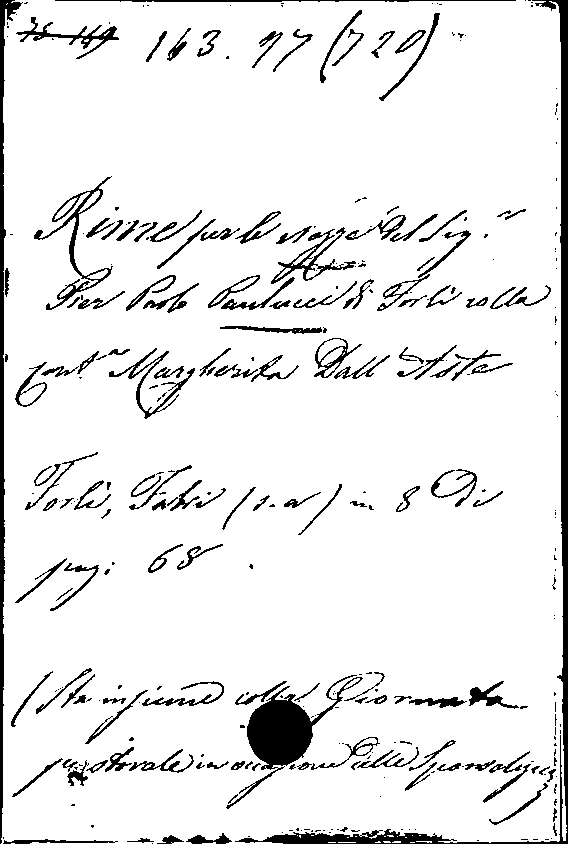 75 149 163. 97 (720)
Rime per le nozze del Sig.r
Pier Paolo Paulucci di Forlì colla
cont.a Margherita Dall'Aste
Forlì, Fabri (s. a) in 8 Di
pag: 68.
(Sta insieme colla Giornata
pastorale in occasione delle Sponsalizie)